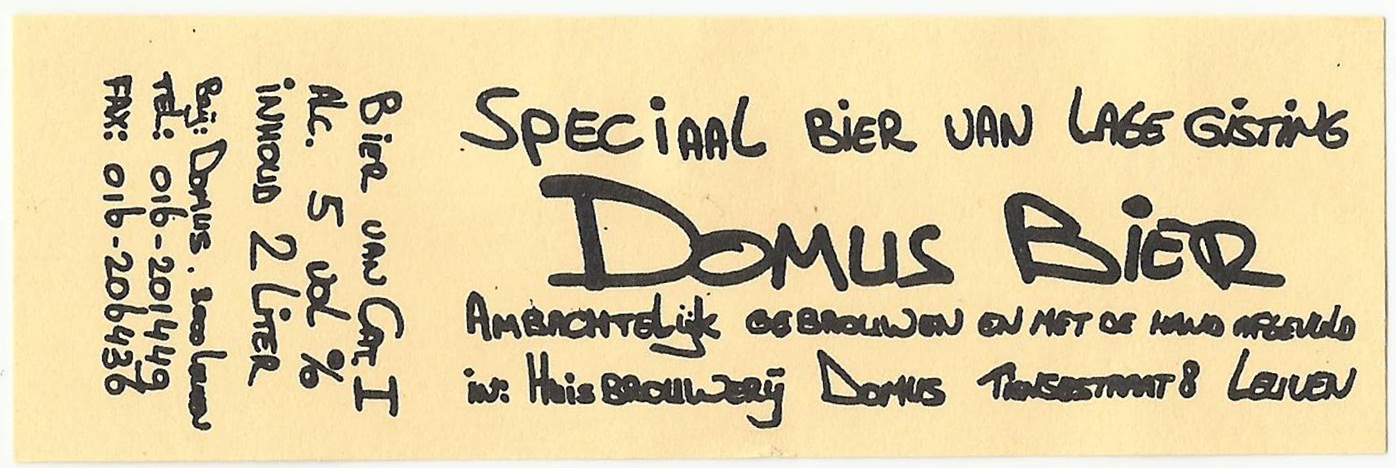 SPECiAAL BiER VAN LAGE GiSTiNG
DOMUS BiER
AMBACHTELijk GEBROUWEN EN MET DE HAND AFGEVULD
in: HuisBROUWERij DOMUS TIENSESTRAAT 8 LEUVEN
BiER VAN CAT. I
ALC. 5 VOL %
iNHOUD 2 LiTER
Bij: DOMUS. 3000 Leuven
TEL.: 016-201449
FAX: 016-206436